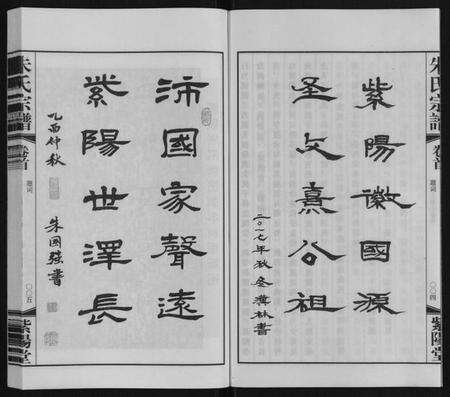 朱氏宗譜
卷首
題词
〇〇四
紫陽堂
紫陽徽國源
圣文熹公祖
二〇一七年秋
書
沛國家聲遠
紫陽世澤長
乙酉仲秋
朱国強書
朱氏宗譜
卷首
題词
〇〇五
紫陽堂